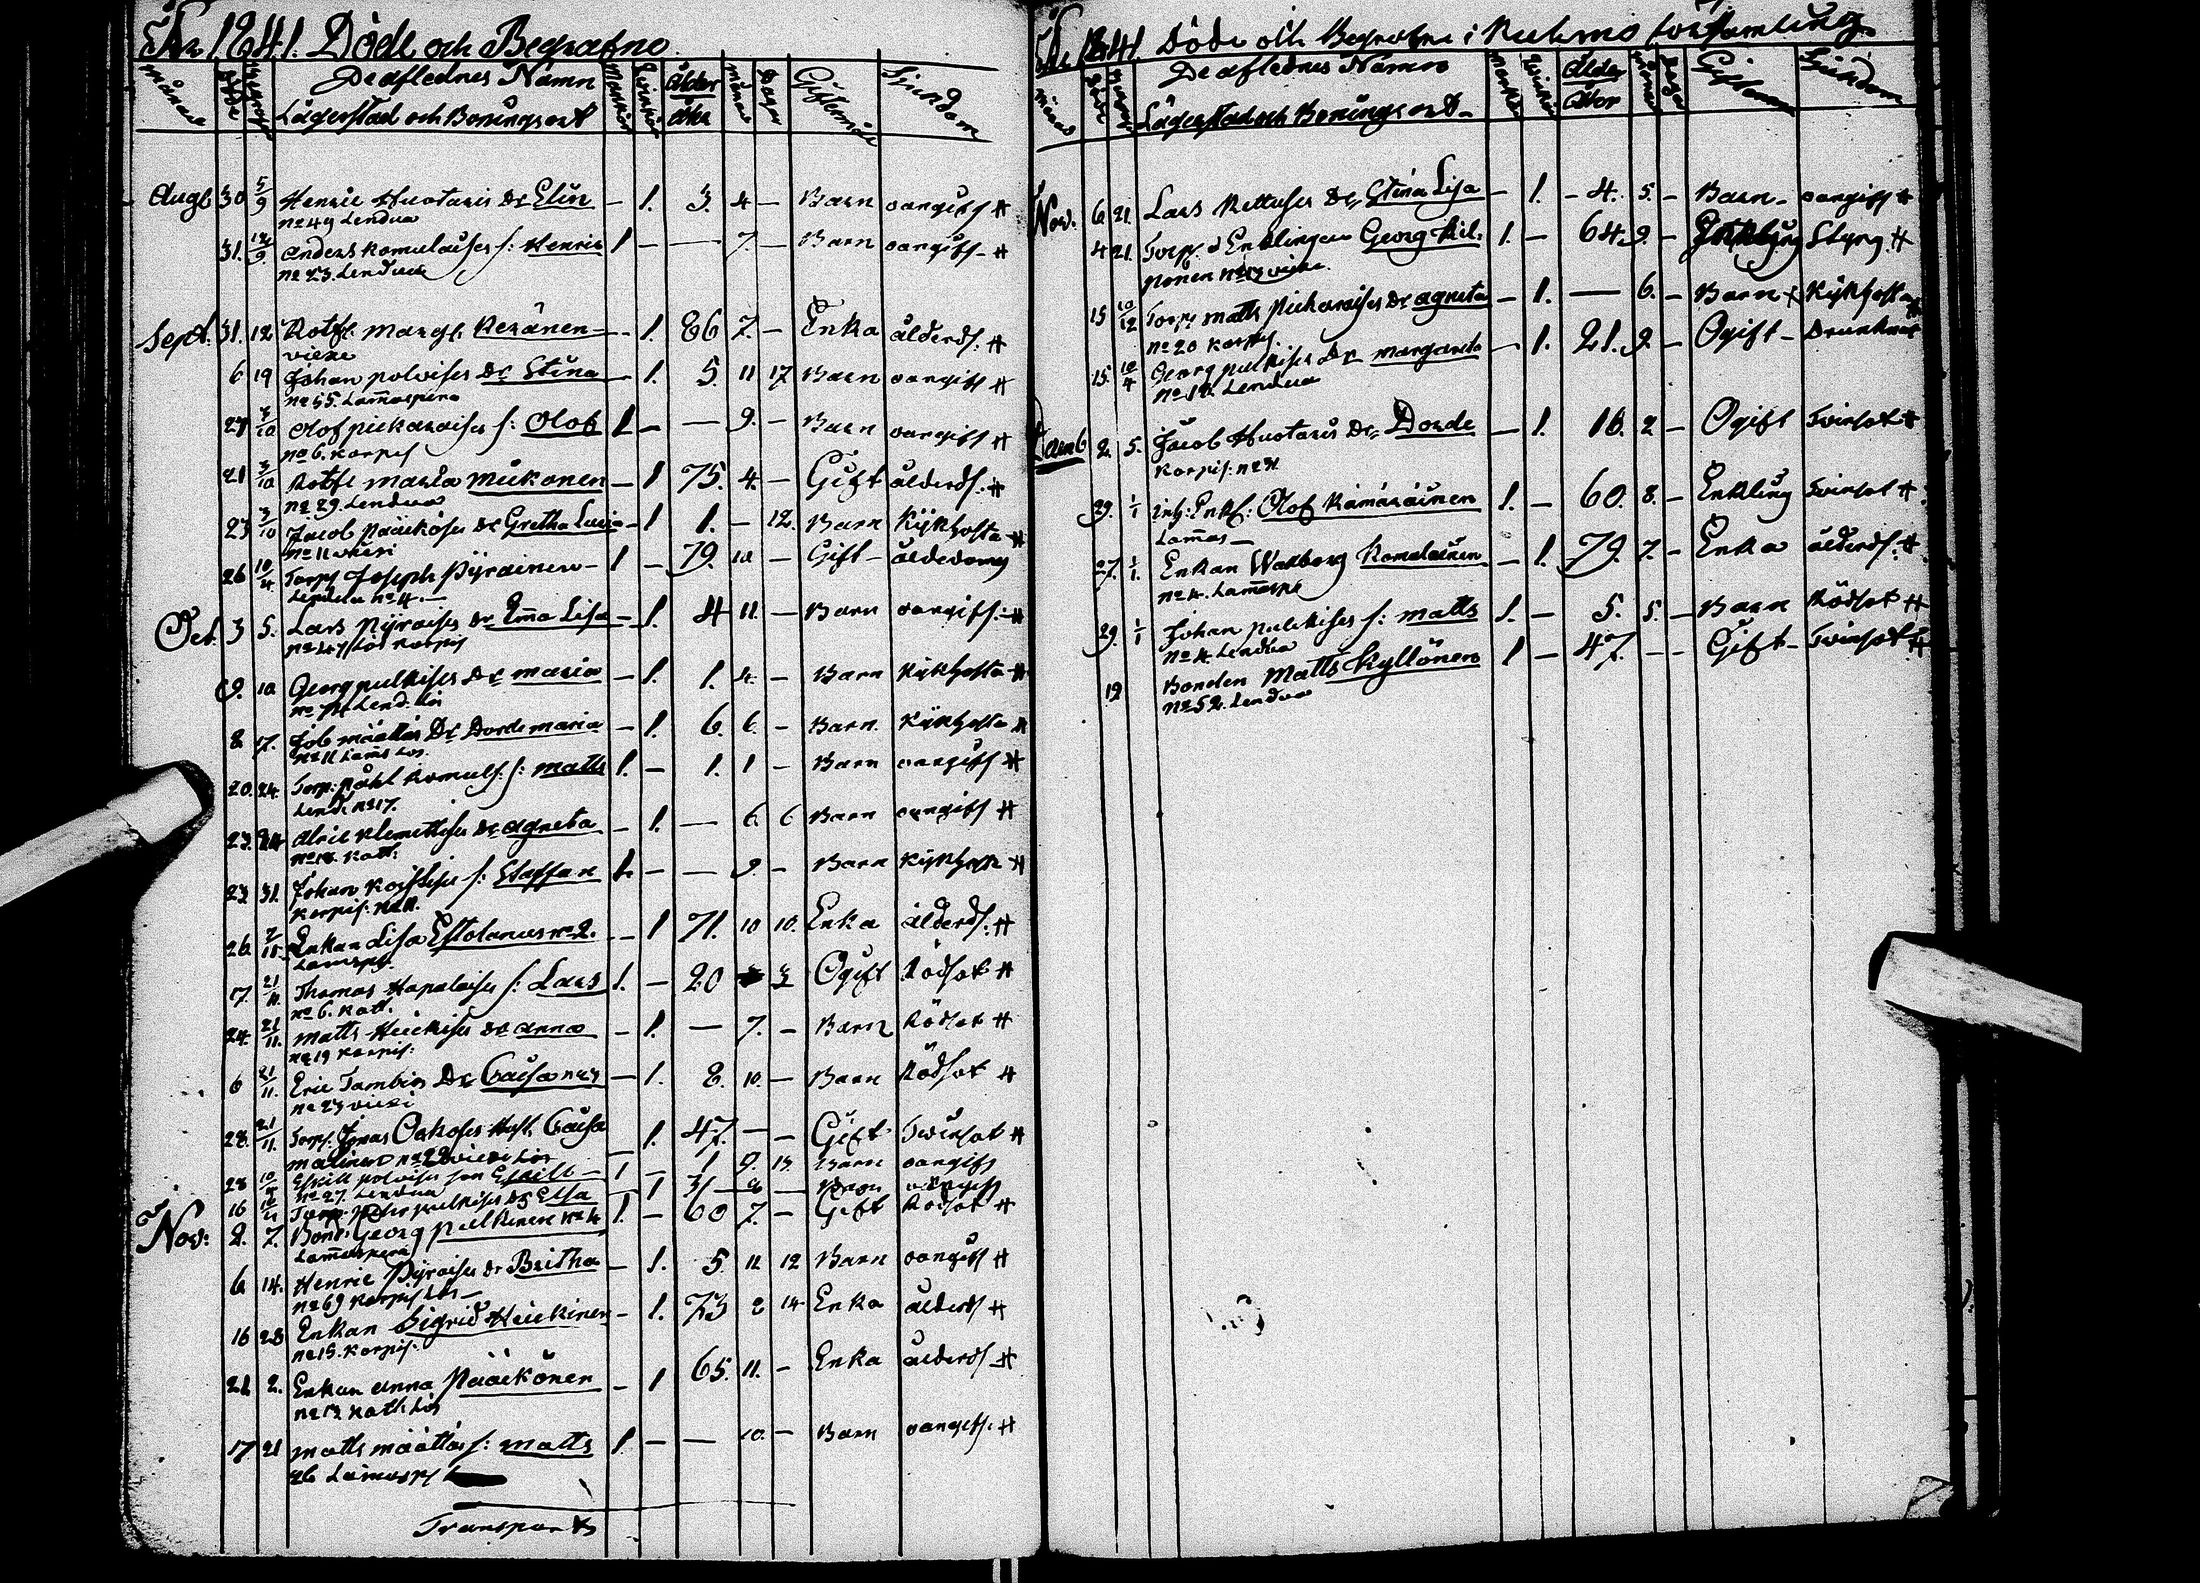 År 1841. Döde och Begrafne
Månad Döde Begrafne De aflednes Namn Mankön Qvinkön Ålder Månad Dagar Giftermål Siukdom
Lägerstad och Boningsort åhr
Augt 30 5/9 Henric Huotaris Dr Elin — 1. 3. 4 — Barn oangifs #
No 49 Lendua
31. 12/9 Anders Romulaises s: Henric 1 — — 7. — Barn oangifs #
No 23. Lendua
Sept. 31. 12 Rothj. Margt. Keränen — 1. 86 7. — Enka ålderds: #
viexe
6 19 Johan polvises Dr Stina — 1. 5. 11 17 Barn oangifs #
No 55. Lammaspera
27 3/10 Olof pickaraises s: Olof 1 — — 9. — Barn oangifs #
No 6. Korpis
21 3/10 Rothj Maria Mickonen — 1 75. 4. — Gift ålderds: #
No 29. Lendua
23 3/10 Jacob Pääiköses Dr Gretha Lusia — 1 1. — 12. Barn Kikhosta #
No 11 viexi
26 10/4 Torp Joseph Pyrainen — 1 — 79. 10 — Gift — ålderdomg
Lendua No 4. —
Oct. 3 5. Lars Pyraises Dr Emma Lisa — 1. 4 11. — Barn oangifs: #
No 47 Lös Korpis
9. 10 Georg pulkises Dr Maria — 1. 1. 4. — Barn Kikhosta #
No 74 Lend. Lös
8 17. Job määttäs Dr Dorde maria — 1. 6. 6. — Barn. Kikhosta #
No 11 Lams Lös.
20. 24. Torp: påhl Romul: s: matts 1. — 1. 1 — Barn oangifs #
Lend. No 17.
23. 24 Alric Klemettises Dr agneta — 1. — 6. 6 Barn oangifs #
No 18. Kath:
23 31. Johan Koistises s: Staffan 1. — — 9 — Barn Kikhosta #
Korpis: No 11.
26. 7/11 Enkan Lisa Estolanus No 2. — 1 71. 10 10. Enka ålderds: #
Lamaspr.
17. 21/11 Thomas Hapalaises s: Lars 1. — 20 3 Ogift Rödsot #
No 6. Kath.
24. 21/11. Matts Heickises Dr anna — 1. — 7. — Barn Rödsot #
No 19 Korpis:
6 21/11. Eric Tambirs Dr Caisa — 1. 8. 10. — Barn Rödsot #
No 23 viexi
28. 21/11. Torp. Jonas Oskoses Hust. Caisa — 1. 47. — — Gift Twinsot #
malinen No 22 viexi Lös
28 Eskill polvises son Eskill — 1 — 1 9. 13. Barn oangifs
No 27. Lendua
16 Torp. Petter pulkises Dr Elsa — 1 3/ 8 — Barn oangifs
Nov: 2. 7. Bond: Georg pulkinen No 4 1. — 60 7. — Gift Rödsot #
Lammaspera
6. 14. Henric Pyraises Dr Britha — 1. 5. 11 12 Barn oangifs #
No 69 Korpis Lös —
16 28 Enkan Sigrid Heickinen — 1. 73 2 14 Enka ålderds #
No 15. Korpis:
21. 2. Enkan anna Pääikönen — 1 65. 11. — Enka ålderds #
No 13 Kath Lös
17 21 matts määttäs s: matts 1. — — 10. — Barn oangifs: #
26 Lamaspr
Transport
År 1841 Döde och Begrafne i Kuhmo församling
Månad Döde Begr. De aflednes Namn Mankön Qvinkön Ålder Månad Dagar Giftermål Siukdom
Lägerstad och Boningsort Åhr
Nov. 6 21. Lars Kettuses Dr Stina Lisa — 1. — 4. 5. — Barn — oangifs #
4 21. Torp. Enklingen Georg Kil- 1. — 64. 9. — Enkling Styng #
ponen No 13 viexi.
15 10/12 Torp matts Pickaraises Dr agneta — 1. — 6. — Barn Kikhosta #
No 20 Korpis.
15. 10/4 Georg pulkises Dr margareta — 1. 21. 9. — Ogift — Drunknat
No 18. Lendua
Decemb 2. 5. Jacob Huotaris Dr Dorde — 1. 16. 2 — Ogift Twinsot #
Korpis: No 31
29. 1/1 inh: Enkl: Olof Kämäräinen 1. — 60. 8. — Enkling Twinsot #
Lammas —
27. 1/1. Enkan Walborg Romulainen — 1. 79. 7. — Enka ålderds: #
No 4. Lammaspr
29. 1/1 Johan pulkises s: matts 1. — 5. 5. — Barn Rödsot #
No 4. Lendua
19 Bonden Matts Kyllönen 1 — 47. — — Gift — Twinsot #
No 52. Lendua